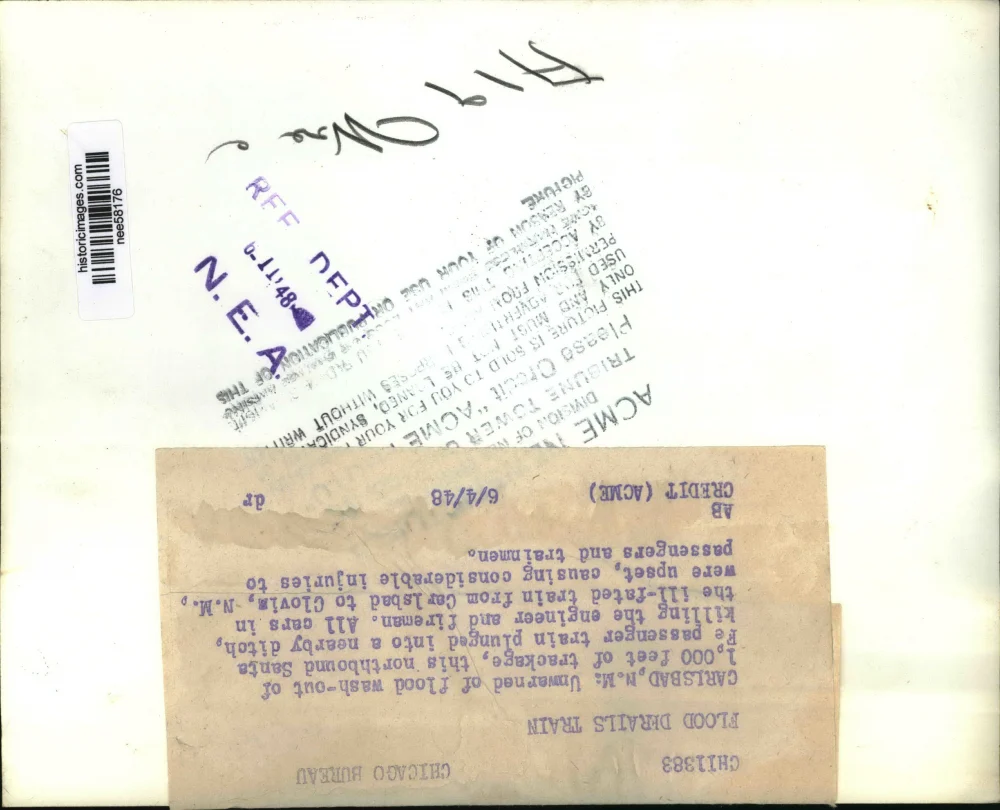 CHI1383 CHICAGO BUREAU
FLOOD DERAILS TRAIN
CARLSBAD, N.M: Unwarned of flood wash-out of
1,000 feet of trackage, this northbound Santa
Fe passenger train plunged into a nearby ditch,
killing the engineer and fireman. All cars in
the ill-fated train from Carlsbad to Clovis, N.M.,
were upset, causing considerable injuries to
passengers and trainmen.
AB
CREDIT (ACME) 6/4/48 dr
ACME
DIVISION OF
TRIBUNE TOWER
Please Credit "ACME
THIS PICTURE IS SOLD TO YOU FOR YOUR
ONLY AND MUST NOT BE LOANED, SYNDICA
USED FOR ADVERTI
WITHOUT WRIT
PERMISSION FROM
BY REASON OF YOUR USE OR PUBLICATION OF THIS
PICTURE
N. E. A.
REF DEPT.
6-11-48
historicimages.com
nee58176